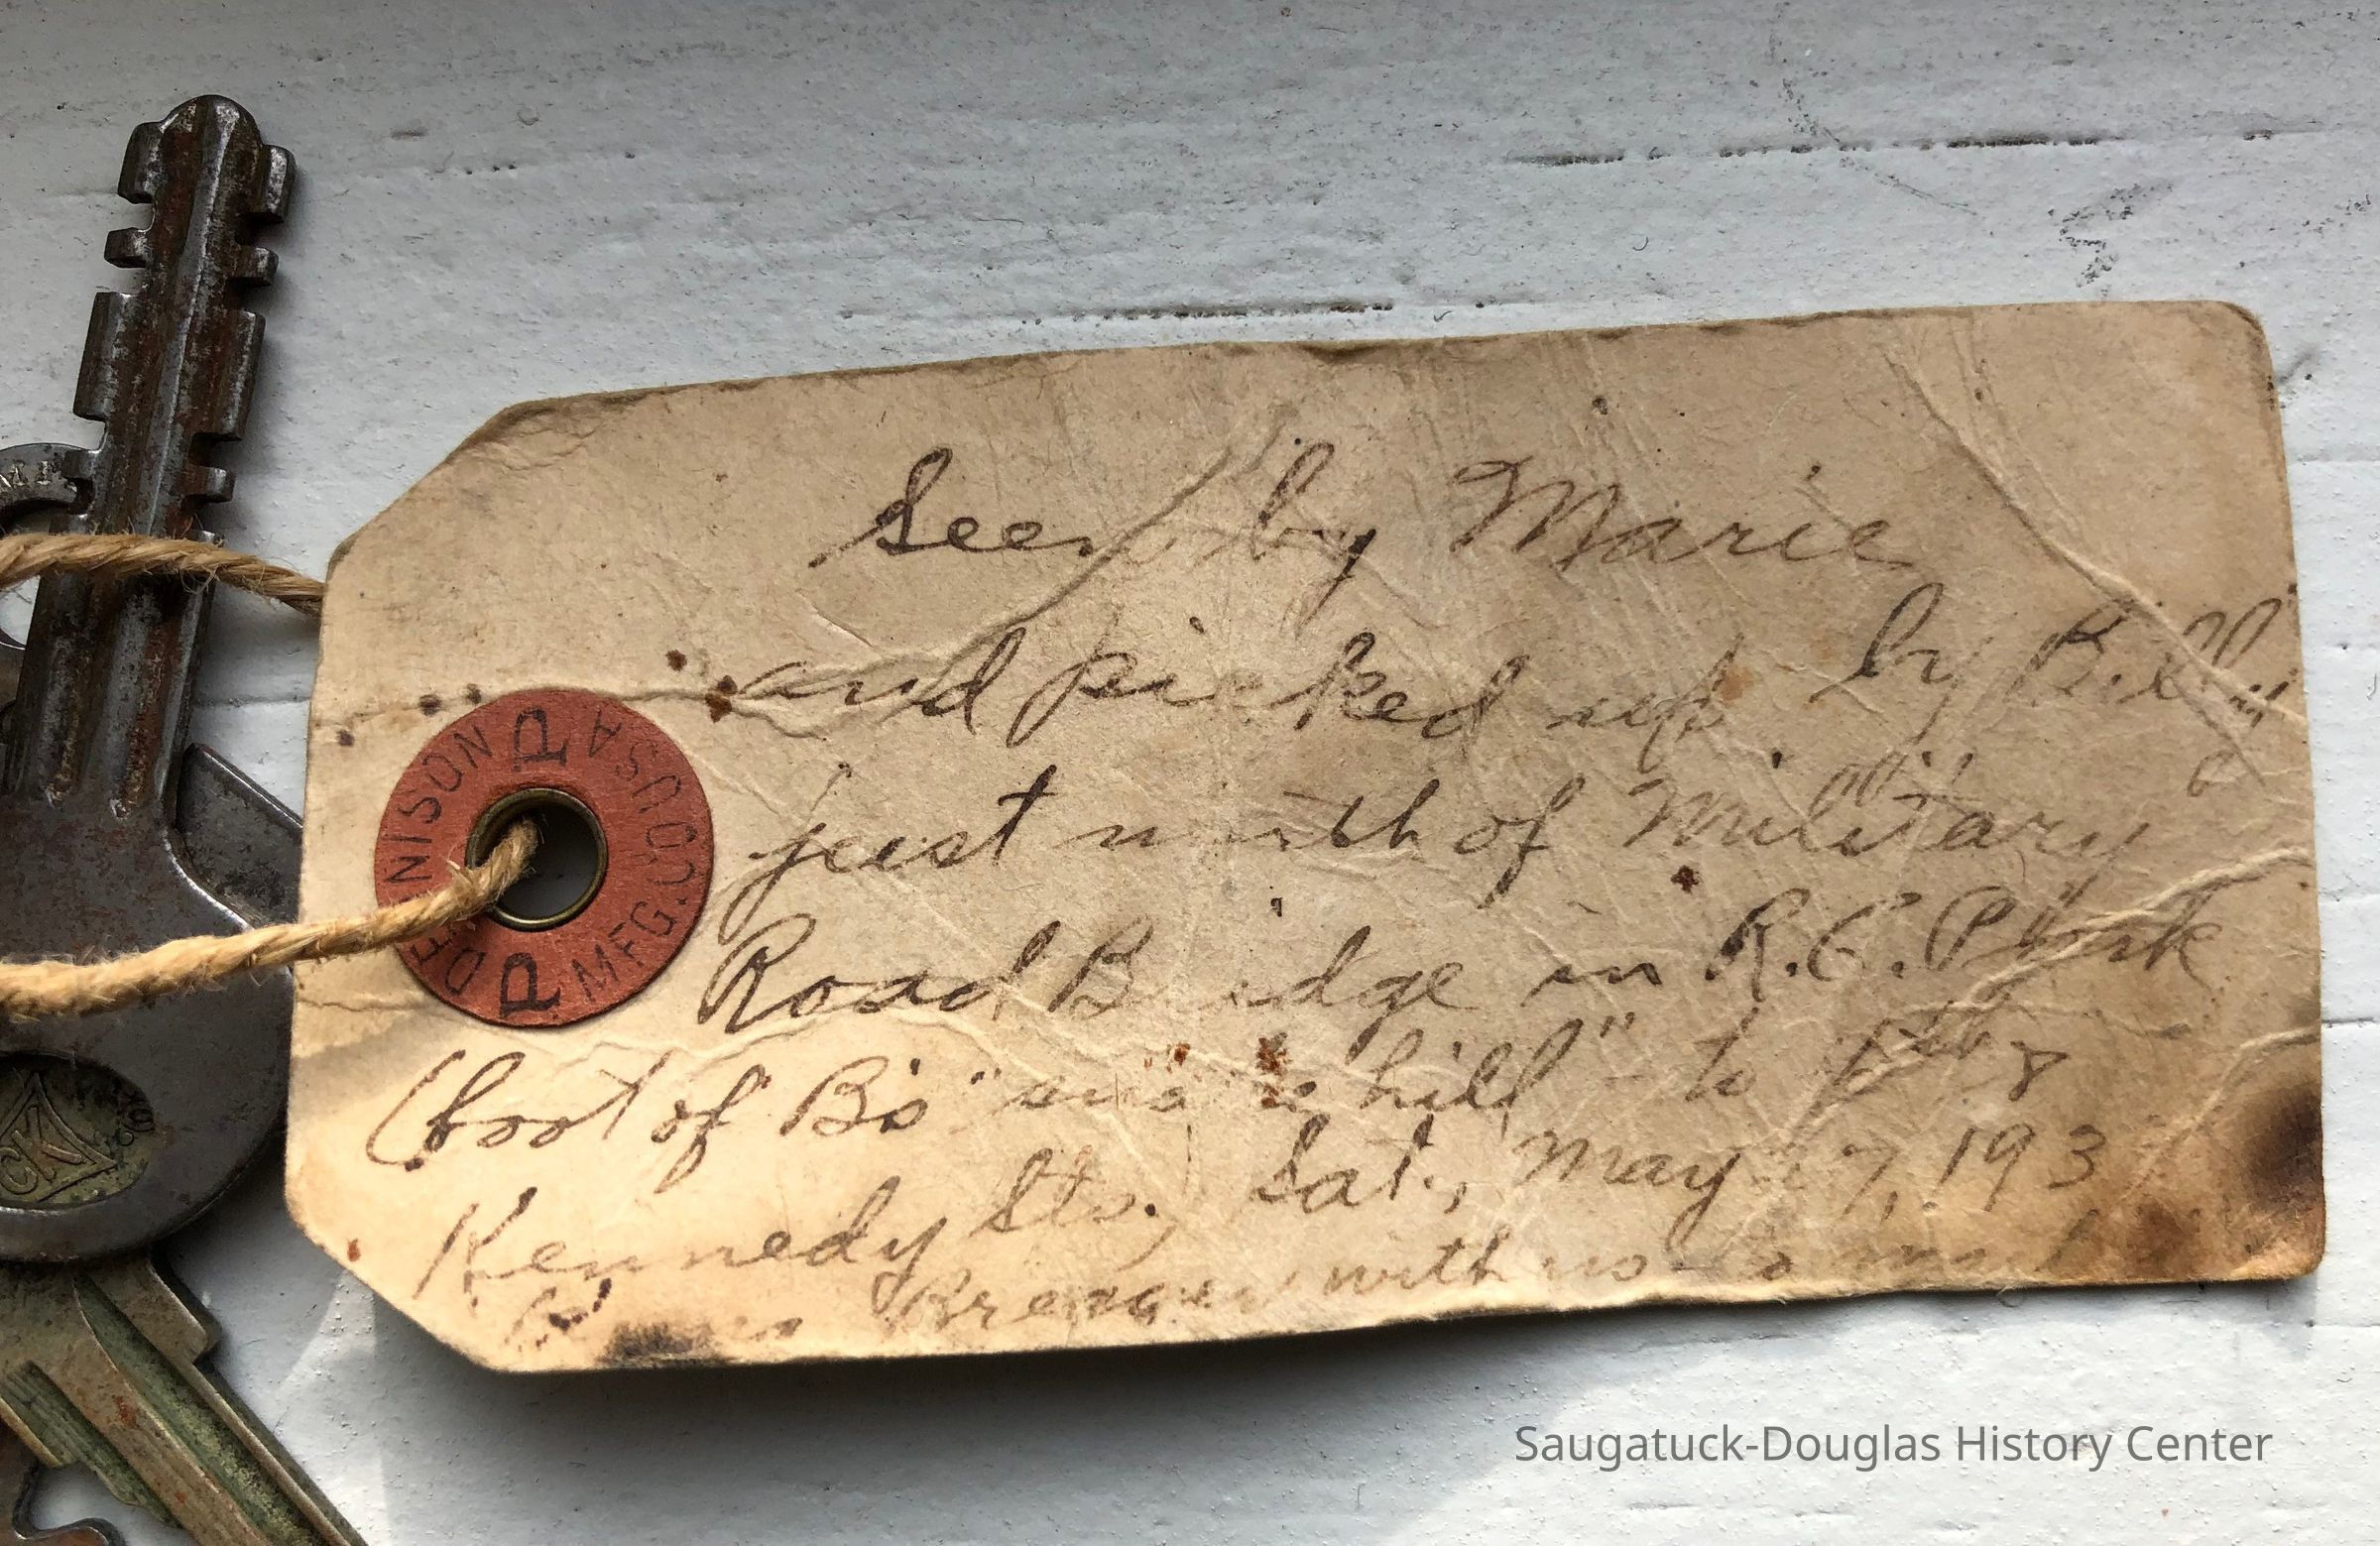 Seen by Marie
and picked up by Bill
just north of Military
Road Bridge in R.C. Park
(foot of B's "snake hill" to
Kennedy Sts., Sat., May 17, 193
with us
DENNISON MFG. CO. USA
P P
Saugatuck-Douglas History Center